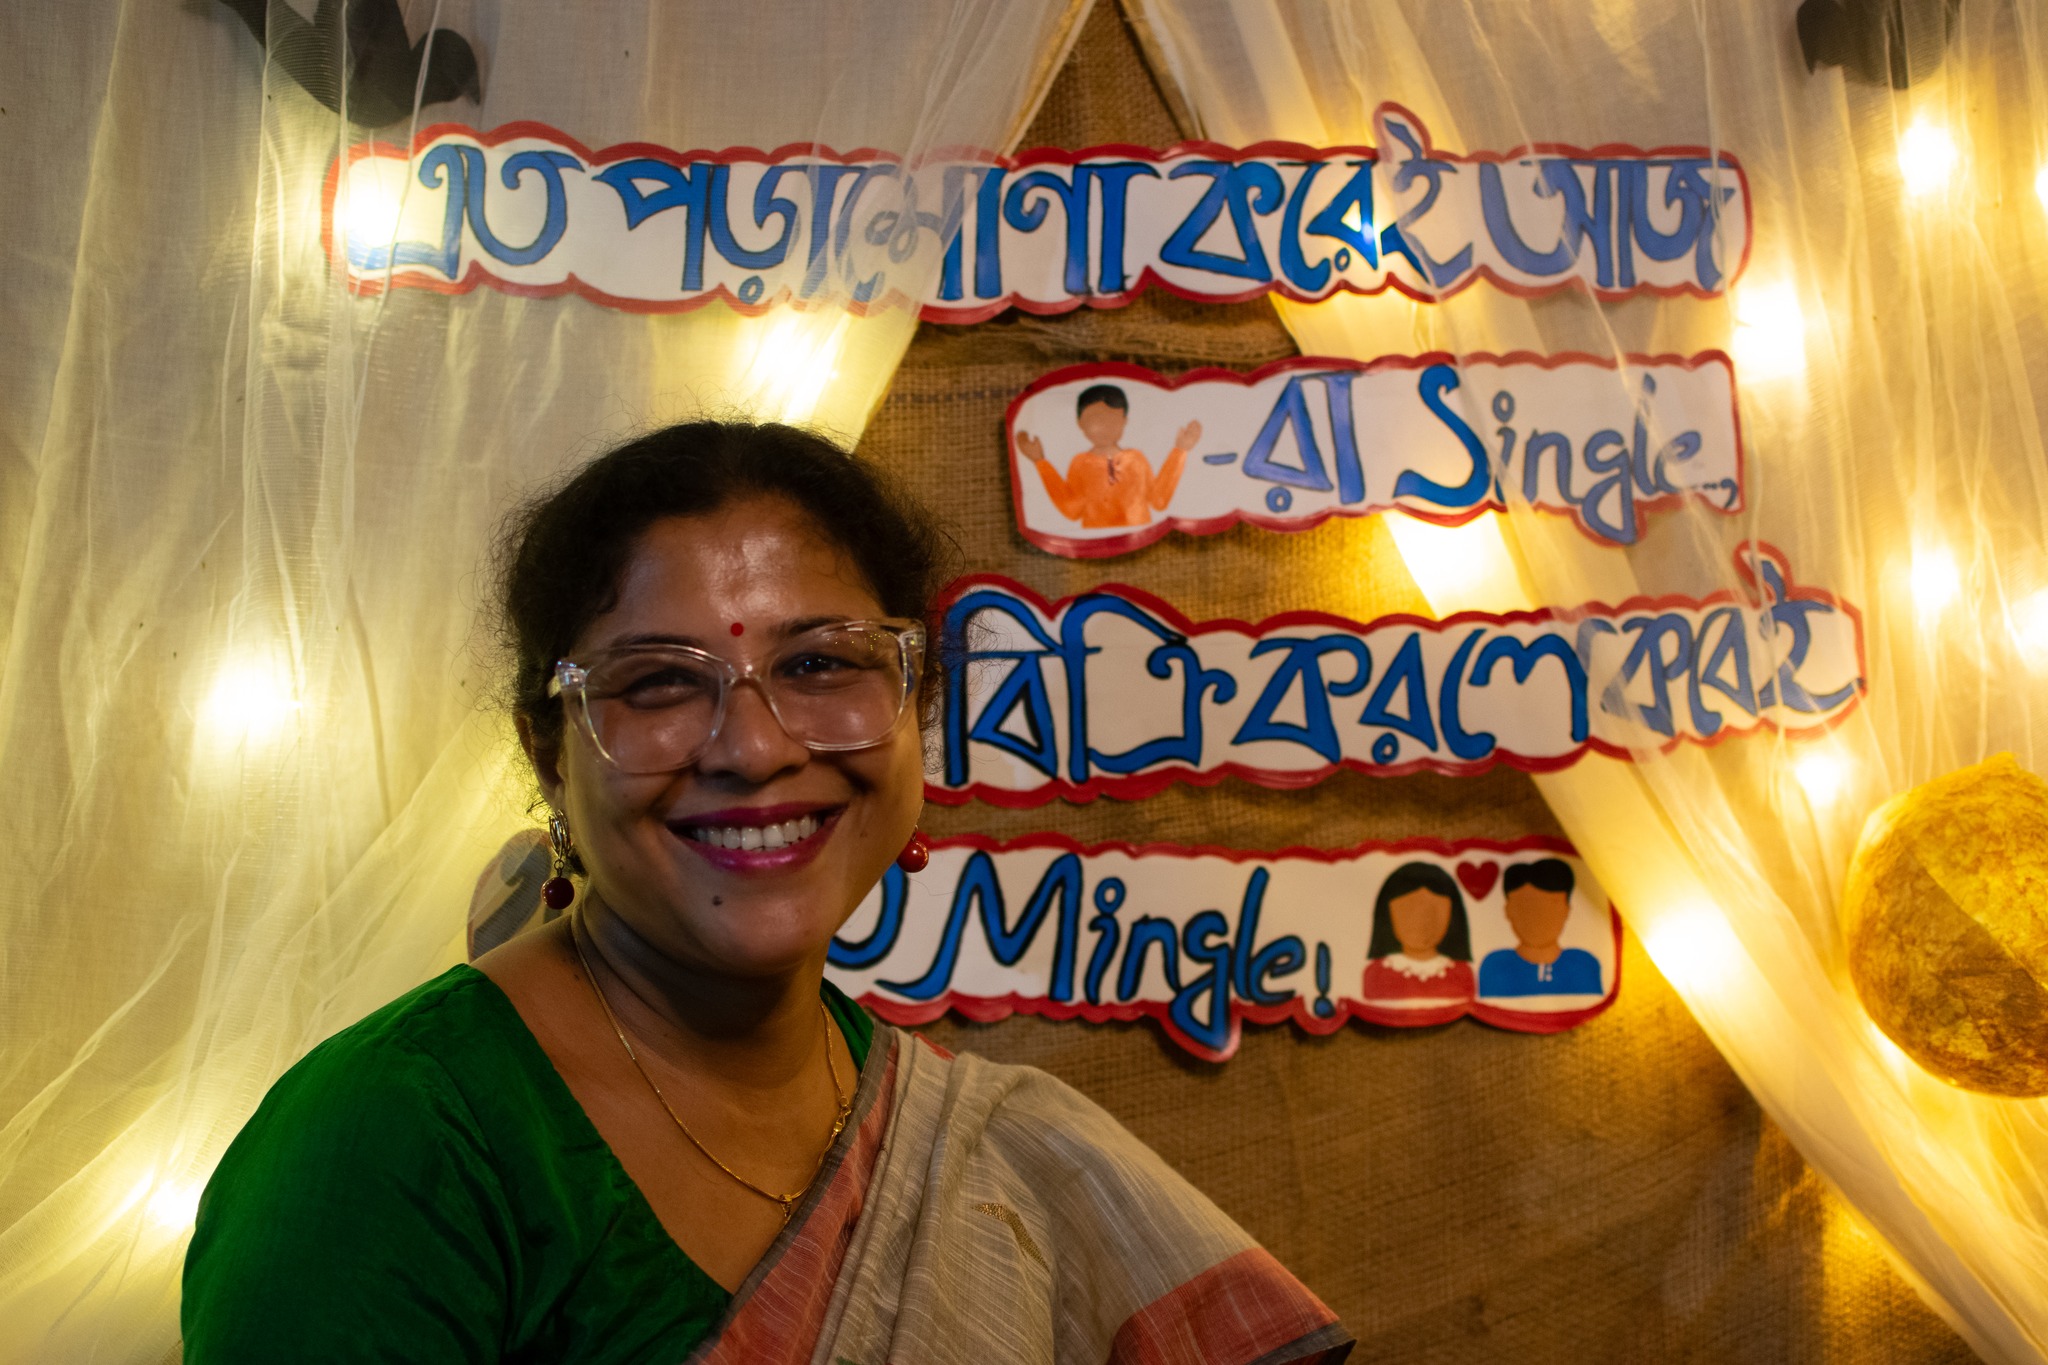 এত পড়াশোণা করেই আজ
-রা Single..,
বিক্রি করলে কবেই
Mingle!